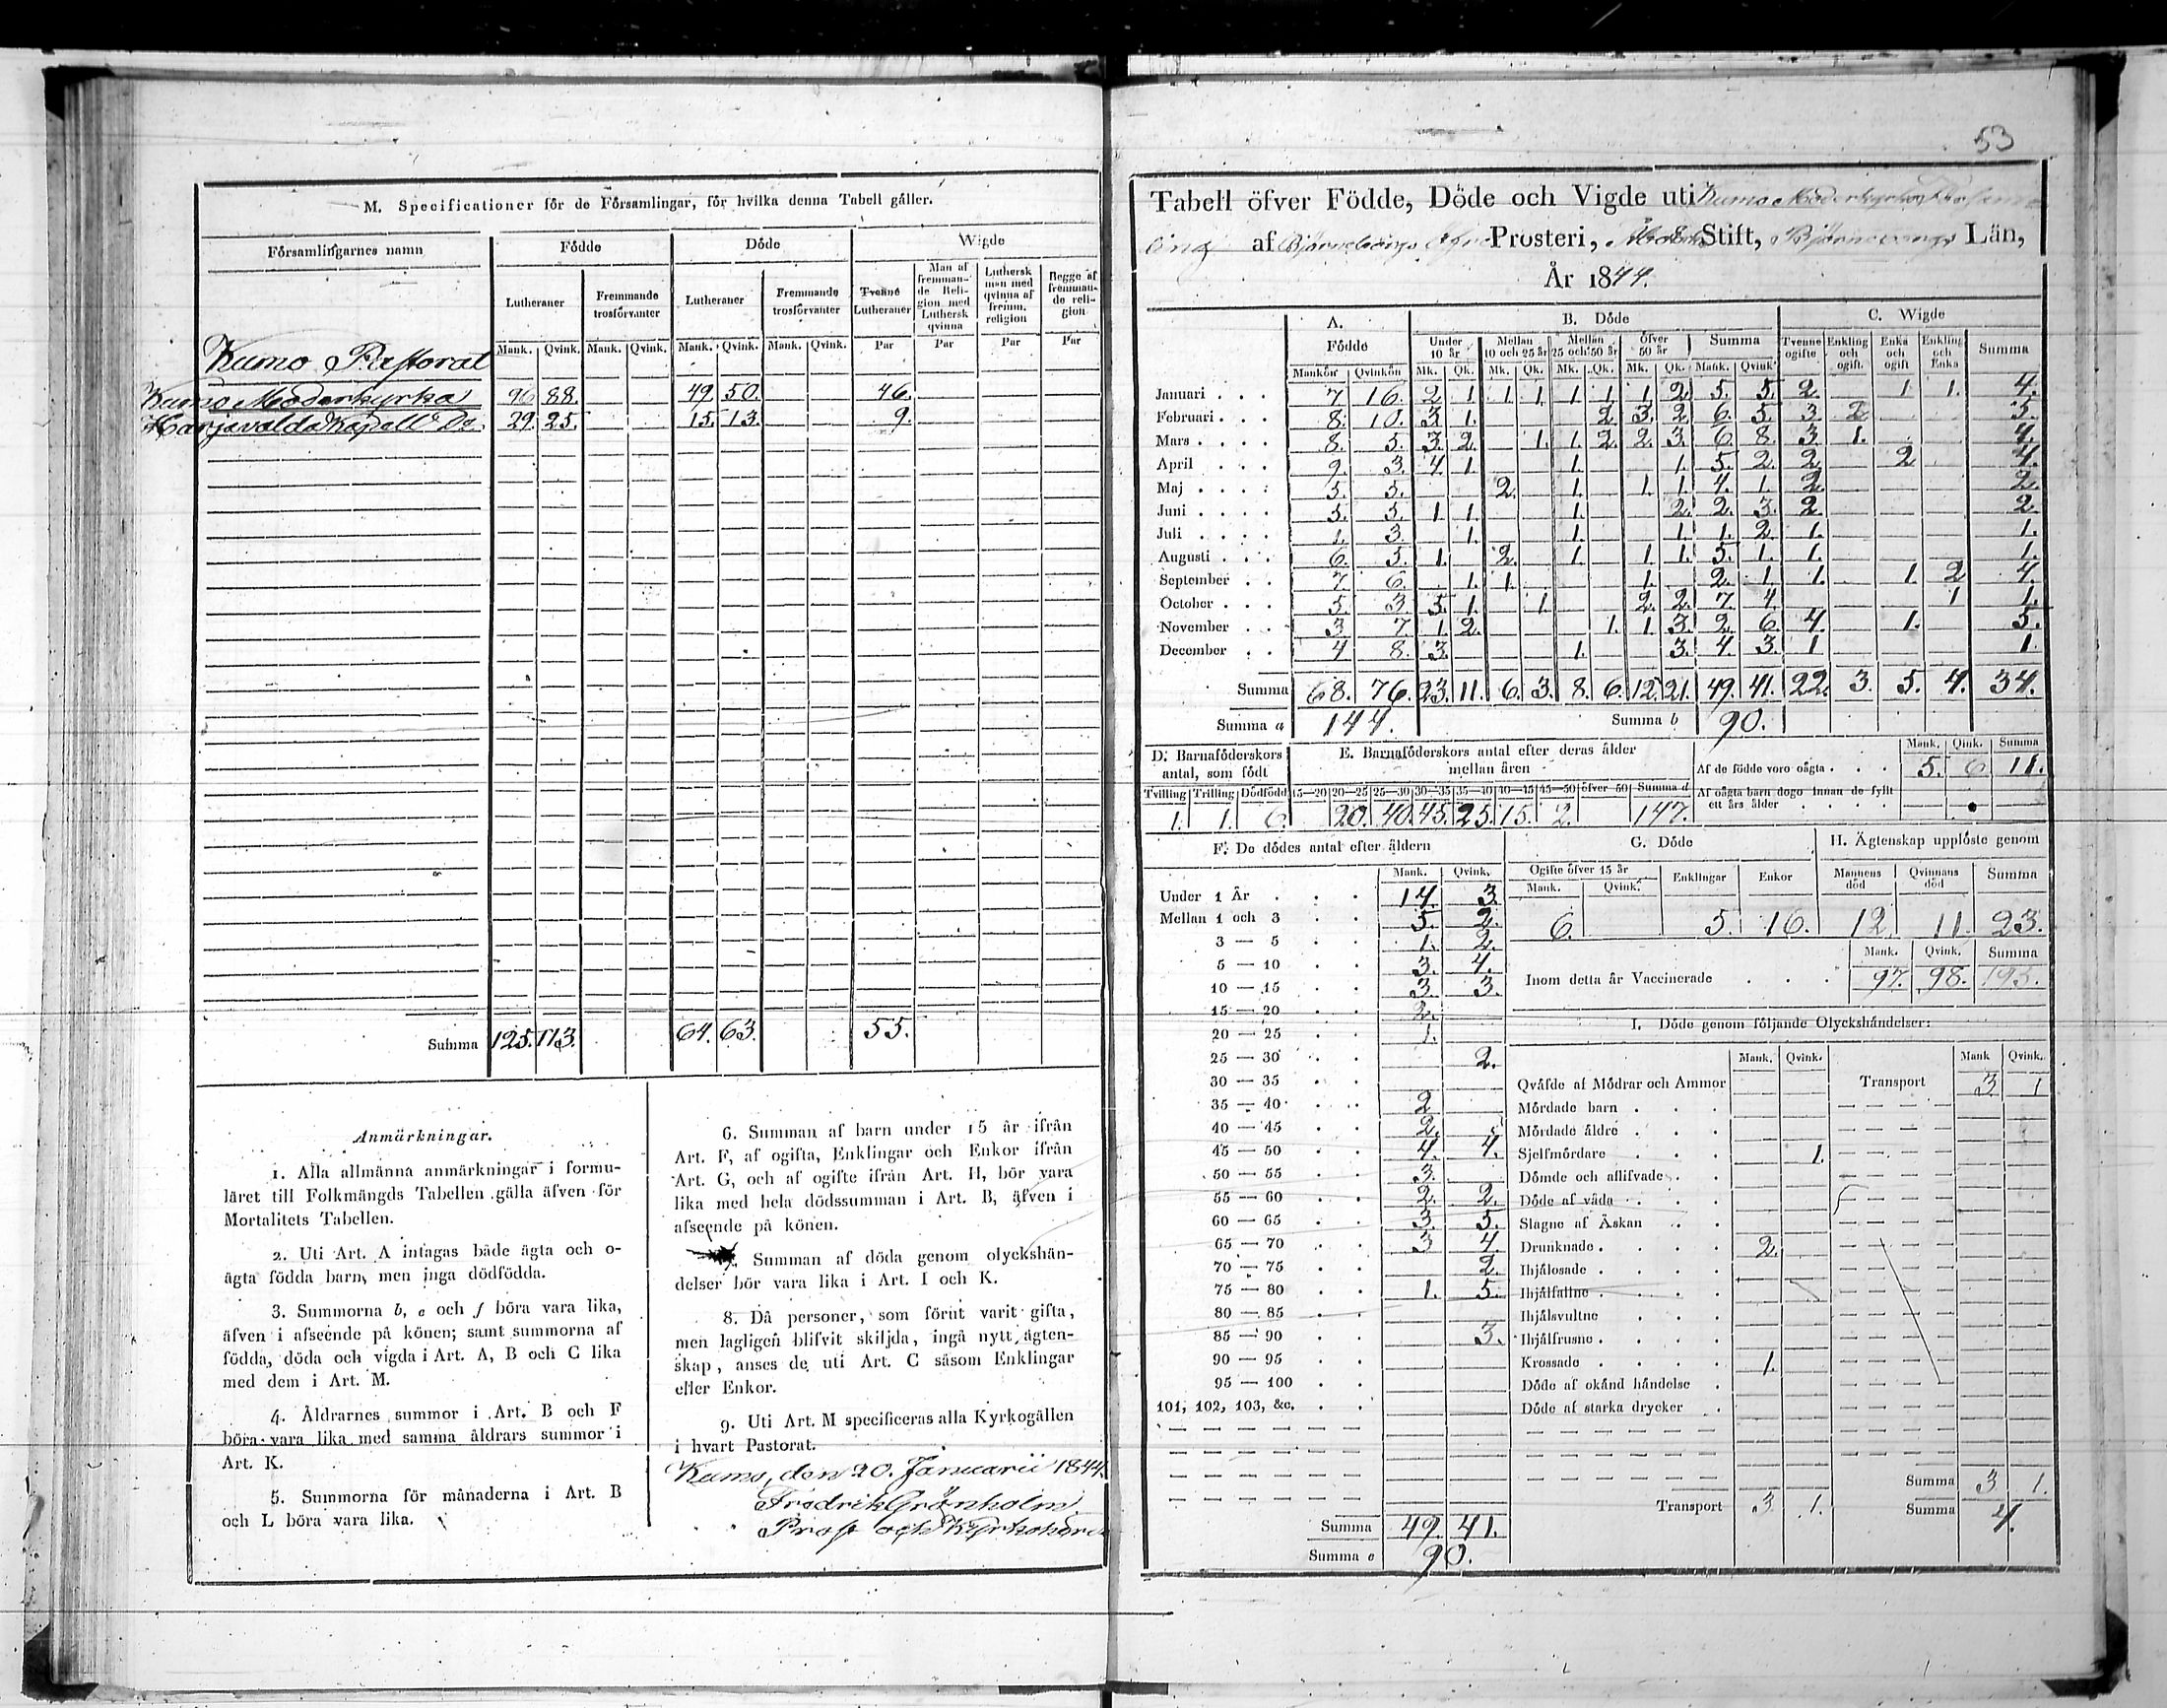 M. Specificationer för de Församlingar, för hvilka denna Tabell gäller.
Församlingarnes namn Födde Döde Wigde
Lutheraner Fremmande trosförvanter Lutheraner Fremmande trosförvanter Tvenne Lutheraner Man af fremmande Religion med Luthersk qvinna Luthersk man med qvinna af fremm. religion Begge af fremmande religion
Mank. Qvink. Mank. Qvink. Mank. Qvink. Mank. Qvink. Par Par Par Par
Kumo Pastorat
Kumo Moderkyrka 96 88. 49. 50. 46.
Harjavalda Kapell Do. 29. 25. 15. 13. 9.
Summa 125. 113. 64. 63. 55.
Anmärkningar.
1. Alla allmänna anmärkningar i formu-
läret till Folkmängds Tabellen gälla äfven för
Mortalitets Tabellen.
2. Uti Art. A intagas både ägta och o-
ägta födda barn, men inga dödfödda.
3. Summorna b, e och f böra vara lika,
äfven i afseende på könen; samt summorna af
födda, döda och vigda i Art. A, B och C lika
med dem i Art. M.
4. Åldrarnes summor i Art. B och F
böra vara lika med samma åldrars summor i
Art. K.
5. Summorna för månaderna i Art. B
och L böra vara lika.
6. Summan af barn under 15 år ifrån
Art. F, af ogifta, Enklingar och Enkor ifrån
Art. G, och af ogifte ifrån Art. H, bör vara
lika med hela dödssumman i Art. B, äfven i
afseende på könen.
7. Summan af döda genom olyckshän-
delser bör vara lika i Art. I och K.
8. Då personer, som förut varit gifta,
men lagligen blifvit skiljda, ingå nytt ägten-
skap, anses de uti Art. C såsom Enklingar
eller Enkor.
9. Uti Art. M specificeras alla Kyrkogällen
i hvart Pastorat.
Kumo, den 20. Januarii 1844.
Fredrik Grönholm
Prost och Kyrkoherde
53
Tabell öfver Födde, Döde och Vigde uti Kumo Moderkyrko Församl
ing af Björneborgs Öfre Prosteri, Åbo Stift, Björneborgs Län,
År 1844.
A. Födde B. Döde C. Wigde
Under 10 år Mellan 10 och 25 år Mellan 25 och 50 år Öfver 50 år Summa Tvenne ogifte Enkling och ogift. Enka och ogift Enkling och Enka Summa
Mankön Qvinkön Mk. Qk. Mk. Qk. Mk. Qk. Mk. Qk. Mank. Qvink
Januari 7 16. 2 1 1 1 1 1 1 2 5. 5. 2 1 1. 4.
Februari 8. 10. 3 1. 2 3. 2 6. 5. 3 2 5.
Mars 8. 5. 3. 2. 1. 1. 2. 2. 3. 6 8. 3 1. 4.
April 9. 3. 4 1. 1. 1. 5. 2. 2 2 4.
Maj 5. 5. 2. 1. 1. 1. 4. 1. 2 2.
Juni 5. 5. 1 1. 1. 2. 2. 3. 2 2
Juli 1. 3. 1. 1. 1. 1. 2. 1. 1.
Augusti 6. 5. 1. 2. 1. 1. 1. 5. 1. 1. 1.
September 7. 6. 1. 1. 1. 2. 1. 1. 1. 2 4.
October 5. 3. 5. 1. 1. 2. 2. 7. 4. 1 1.
November 3 7. 1. 2. 1. 1. 3. 2. 6. 4. 1. 5.
December 4 8. 3. 1. 3. 4. 3. 1 1.
Summa 68. 76. 23. 11. 6. 3. 8. 6. 12. 21. 49. 41. 22. 3. 5. 4. 34.
Summa a 144. Summa b 90.
D. Barnaföderskors antal, som födt
Tvilling Trilling Dödfödd
1. 1. 6.
E. Barnaföderskors antal efter deras ålder mellan åren
15—20 20—25 25—30 30—35 35—40 40—45 45—50 öfver 50 Summa d
20. 40. 45. 25. 15. 2. 147.
Mank. Qink. Summa
Af de födde voro oägta 5. 6 11.
Af oägta barn dogo innan de fyllt ett års ålder
F. De dödes antal efter åldern
Mank. Qvink.
Under 1 År 14. 3.
Mellan 1 och 3 5. 2.
3 — 5 1. 2.
5 — 10 3. 4.
10 — 15 3. 3.
15 — 20 2.
20 — 25 1.
25 — 30 2.
30 — 35
35 — 40 2
40 — 45 2.
45 — 50 4. 4.
50 — 55 3.
55 — 60 2. 2.
60 — 65 3. 5.
65 — 70 3 4.
70 — 75 2.
75 — 80 1. 5.
80 — 85
85 — 90 3.
90 — 95
95 — 100
101, 102, 103, &c.
Summa 49. 41.
Summa e 90.
G. Döde
Ogifte öfver 15 år Enklingar Enkor
Mank. Qvink.
6. 5. 16.
H. Ägtenskap upplöste genom
Mannens död Qvinnans död Summa
12. 11. 23.
Mank. Qvink. Summa
Inom detta år Vaccinerade 97. 98. 195.
I. Döde genom följande Olyckshändelser:
Mank. Qvink. Mank Qvink.
Qväfde af Mödrar och Ammor Transport 3 1
Mördade barn
Mördade äldre
Sjelfmördare 1.
Dömde och aflifvade
Döde af våda
Slagne af Åskan
Drunknade 2.
Ihjälosade
Ihjälfallne
Ihjälsvultne
Ihjälfrusne
Krossade 1.
Döde af okänd händelse
Döde af starka drycker
Summa 3 1.
Transport 3 1. Summa 4.